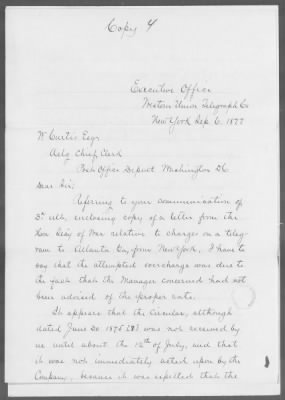 Copy 4
Executive Office
Western Union Telegraph Co
New York Sep. 6. 1877
W Curtis Esqr
Actg Chief Clerk
Post Office Depmt Washington DC
Dear Sir,
Referring to your communication of
3d ult. enclosing copy of a letter from the
Hon Secy of War relative to charges on a teleg-
ram to Atlanta Ga, from New York, I have to
say that the attempted overcharge was due to
the fact that the Manager concerned had not
been advised of the proper rate.
It appears that the Circular, although
dated June 20 1875 was not received by
us until about the 12th of July, and that
it was not immediately acted upon by the
Company, because it was expected that the